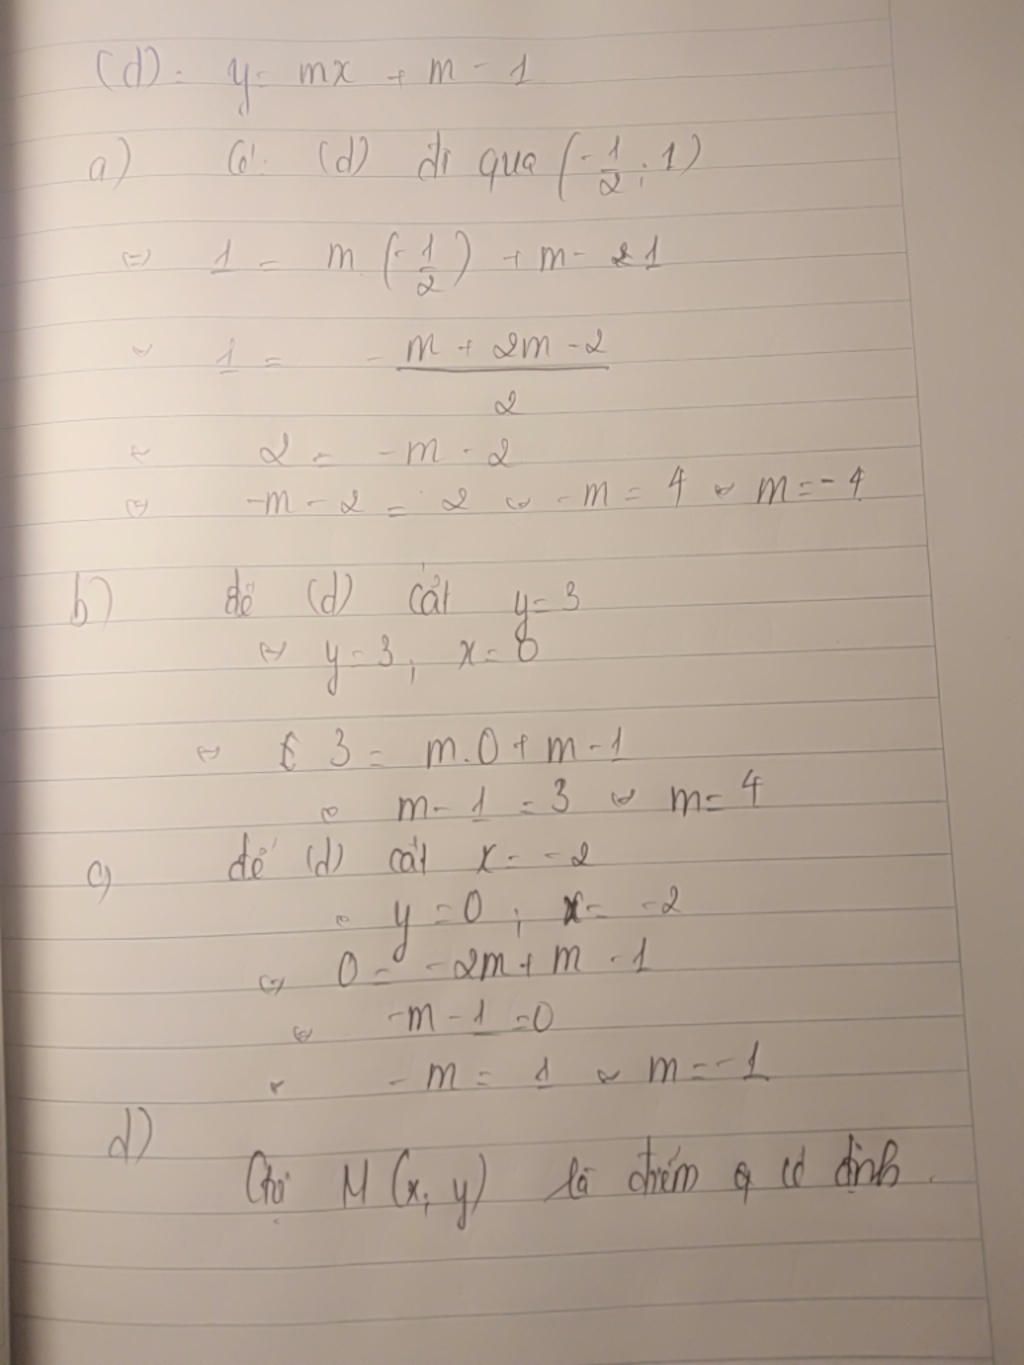 (d): y = mx + m - 1
a) Có: (d) đi qua (-1/2; 1)
⇔ 1 = m (-1/2) + m - 1
⇔ 1 = - m + 2m - 2 / 2
⇔ 2 = -m - 2
⇔ -m - 2 = 2 ⇔ -m = 4 ⇔ m = -4
b) để (d) cắt y = 3
⇔ y = 3, x = 0
⇔ 3 = m.0 + m - 1
⇔ m - 1 = 3 ⇔ m = 4
c) để (d) cắt x = -2
⇔ y = 0; x = -2
⇔ 0 = -2m + m - 1
⇔ -m - 1 = 0
⇔ -m = 1 ⇔ m = -1
d)
M (x, y) là điểm cố định.